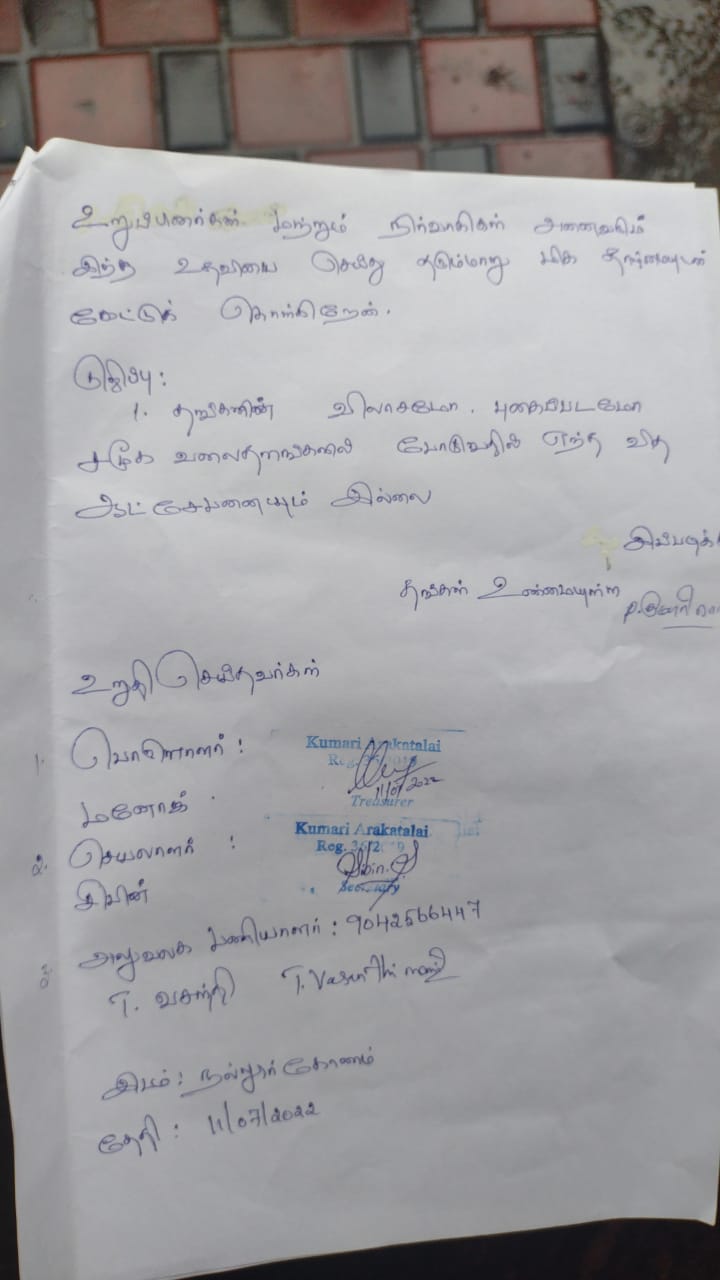 உறுப்பினர்கள் மற்றும் நிர்வாகிகள் அனைவரும்
இந்த உதவியை செய்து தரும்மாறு மிக தாழ்மையுடன்
கேட்டுக் கொள்கிறேன்.
குறிப்பு:
1. தங்களின் விலாசமோ. புகைபடமோ
சமூக வலைதளங்களில் போடுவதில் எந்த வித
ஆட்சேபனையும் இல்லை
இப்படிக்கு
தங்கள் உண்மையுள்ள
உறுதி செய்தவர்கள்
1. பொருளாளர் :
Kumari Arakatalai
மனோஜ்
11/07/2022
Treasurer
2. செயலாளர் :
Kumari Arakatalai
Reg. 36/2019
சிபின்
Secretary
3. அலுவலக பணியாளர் : 9042566447
T. வசந்தி T. Vasanthi
இடம் : நல்லூர் கோணம்
தேதி : 11/07/2022